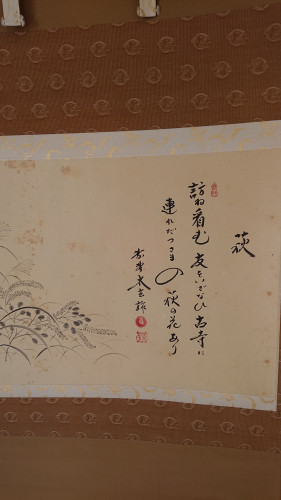 萩
訪ね看む友をいざなひ古寺に
連れだつさまの萩の花あり